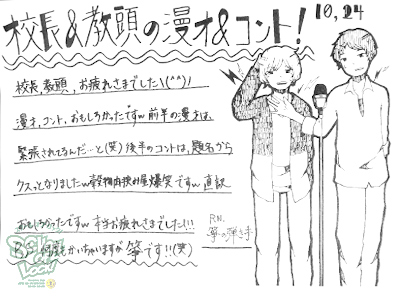 校長&教頭の漫才&コント!
10,24
校長、教頭、お疲れさまでした\(^^)/
漫才、コント、おもしろかったですw 前半の漫才は、
緊張されてるんだ…と(笑)後半のコントは、題名から
クスッとなりましたw 穀物肉挟み屋爆笑ですw 直訳
おもしろかったですw 本当お疲れさまでした!!!
P.S 何度もかいちゃいますが 箏です!!(笑)
R.N.
箏の弾き手
SCHOOL OF LOCK!